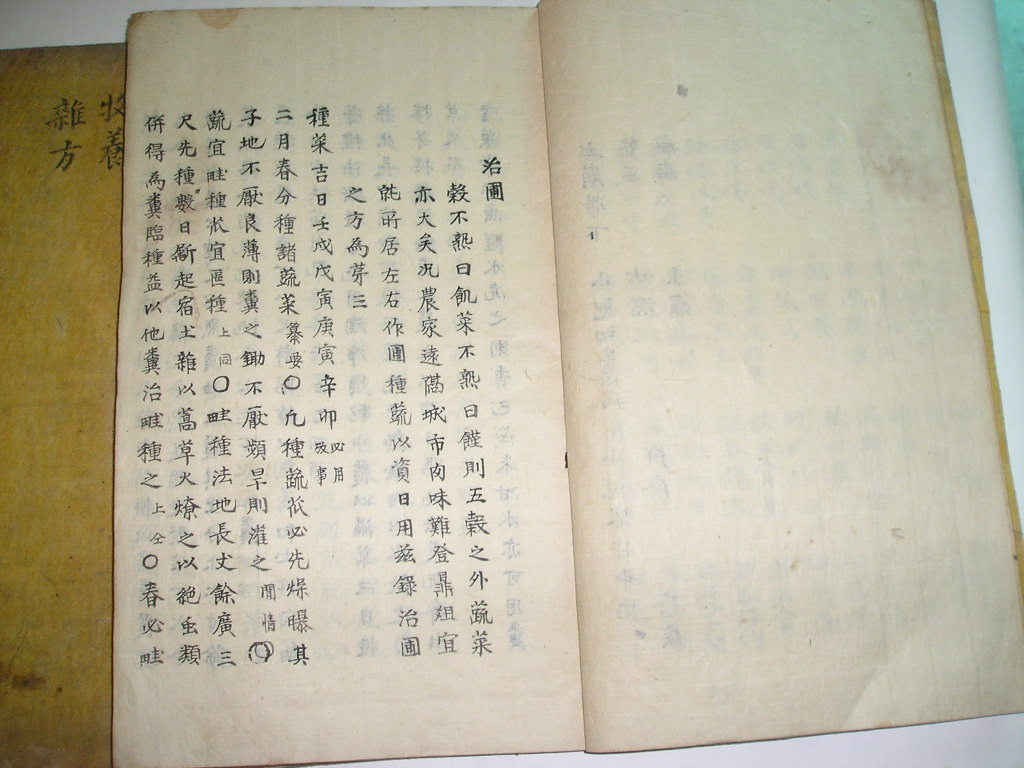 治圃
穀不熟曰飢菜不熟曰饉則五穀之外蔬菜
亦大矣况農家遠隔城市肉味難登鼎俎宜
就所居左右作圃種蔬以資日用玆錄治圃
之方為第三
種菜吉日壬戌戊寅庚寅辛卯必用故事
二月春分種諸蔬菜纂要○凡種蔬蓏必先燥曝其
子地不厭良薄則糞之鋤不厭頻旱則灌之閒情○
蔬宜畦種蓏宜區種同上○畦種法地長丈餘廣三
尺先種數日斸起宿土雜以蒿草火燎之以絶虫類
併得為糞臨種益以他糞治畦種之仝上○春必畦
牧養
雜方